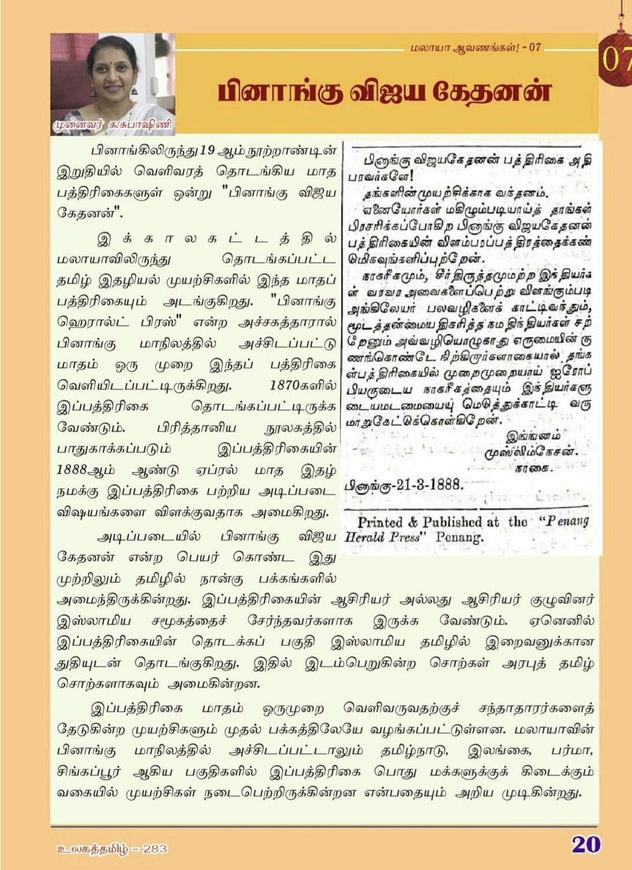 மலாயா ஆவணங்கள்! - 07
07
பினாங்கு விஜய கேதனன்
முனைவர் க.சுபாஷிணி
பினாங்கிலிருந்து 19 ஆம் நூற்றாண்டின்
இறுதியில் வெளிவரத் தொடங்கிய மாத
பத்திரிகைகளுள் ஒன்று "பினாங்கு விஜய
கேதனன்".
இக்காலகட்டத்தில்
மலாயாவிலிருந்து தொடங்கப்பட்ட
தமிழ் இதழியல் முயற்சிகளில் இந்த மாதப்
பத்திரிகையும் அடங்குகிறது. "பினாங்கு
ஹெரால்ட் பிரஸ்" என்ற அச்சகத்தாரால்
பினாங்கு மாநிலத்தில் அச்சிடப்பட்டு
மாதம் ஒரு முறை இந்தப் பத்திரிகை
வெளியிடப்பட்டிருக்கிறது. 1870களில்
இப்பத்திரிகை தொடங்கப்பட்டிருக்க
வேண்டும். பிரித்தானிய நூலகத்தில்
பாதுகாக்கப்படும் இப்பத்திரிகையின்
1888ஆம் ஆண்டு ஏப்ரல் மாத இதழ்
நமக்கு இப்பத்திரிகை பற்றிய அடிப்படை
விஷயங்களை விளக்குவதாக அமைகிறது.
அடிப்படையில் பினாங்கு விஜய
கேதனன் என்ற பெயர் கொண்ட இது
முற்றிலும் தமிழில் நான்கு பக்கங்களில்
அமைந்திருக்கின்றது. இப்பத்திரிகையின் ஆசிரியர் அல்லது ஆசிரியர் குழுவினர்
இஸ்லாமிய சமூகத்தைச் சேர்ந்தவர்களாக இருக்க வேண்டும். ஏனெனில்
இப்பத்திரிகையின் தொடக்கப் பகுதி இஸ்லாமிய தமிழில் இறைவனுக்கான
துதியுடன் தொடங்குகிறது. இதில் இடம்பெறுகின்ற சொற்கள் அரபுத் தமிழ்
சொற்களாகவும் அமைகின்றன.
இப்பத்திரிகை மாதம் ஒருமுறை வெளிவருவதற்குச் சந்தாதாரர்களைத்
தேடுகின்ற முயற்சிகளும் முதல் பக்கத்திலேயே வழங்கப்பட்டுள்ளன. மலாயாவின்
பினாங்கு மாநிலத்தில் அச்சிடப்பட்டாலும் தமிழ்நாடு, இலங்கை, பர்மா,
சிங்கப்பூர் ஆகிய பகுதிகளில் இப்பத்திரிகை பொது மக்களுக்குக் கிடைக்கும்
வகையில் முயற்சிகள் நடைபெற்றிருக்கின்றன என்பதையும் அறிய முடிகின்றது.
பினாங்கு விஜயகேதனன் பத்திரிகை அதி
பரவர்களே!
தங்களின்முயற்சிக்காக வந்தனம்.
ஏனையோர்கள் மகிழும்படியாய்த் தாங்கள்
பிரசரிக்கப்போகிற பினாங்கு விஜயகேதனன்
பத்திரிகையின் விளம்பரப்பத்திரத்தைக்கண்
டுமிகவுங்களிப்புற்றேன்.
நாகரீகமும், சீர்திருத்தமுமற்ற இந்தியர்க
ள் வரவர அவைகளைப்பெற்று விளங்கும்படி
அங்கிலேயர் பலவழிகளைக் காட்டிவந்தும்,
மூடத்தன்மைய திகரித்த நம திந்தியர்கள் சற்
றேனும் அவ்வழியொழுகாது எருமையின் கு
ணங்கொண்டே நிற்கிறார்களாகையால் தங்க
ள்பத்திரிகையில் முறைமுறையாய் ஐரோப்
பியருடைய நாகரீகத்தையும் இந்தியர்களு
டையமடமையையு மெடுத்துக்காட்டி வரு
மாறுகேட்டுக்கொள்கிறேன்.
இங்ஙனம்
முஸ்லிம்நேசன்.
நாகை.
பினாங்கு-21-3-1888.
Printed & Published at the "Penang
Herald Press" Penang.
உலகத்தமிழ் – 283
20